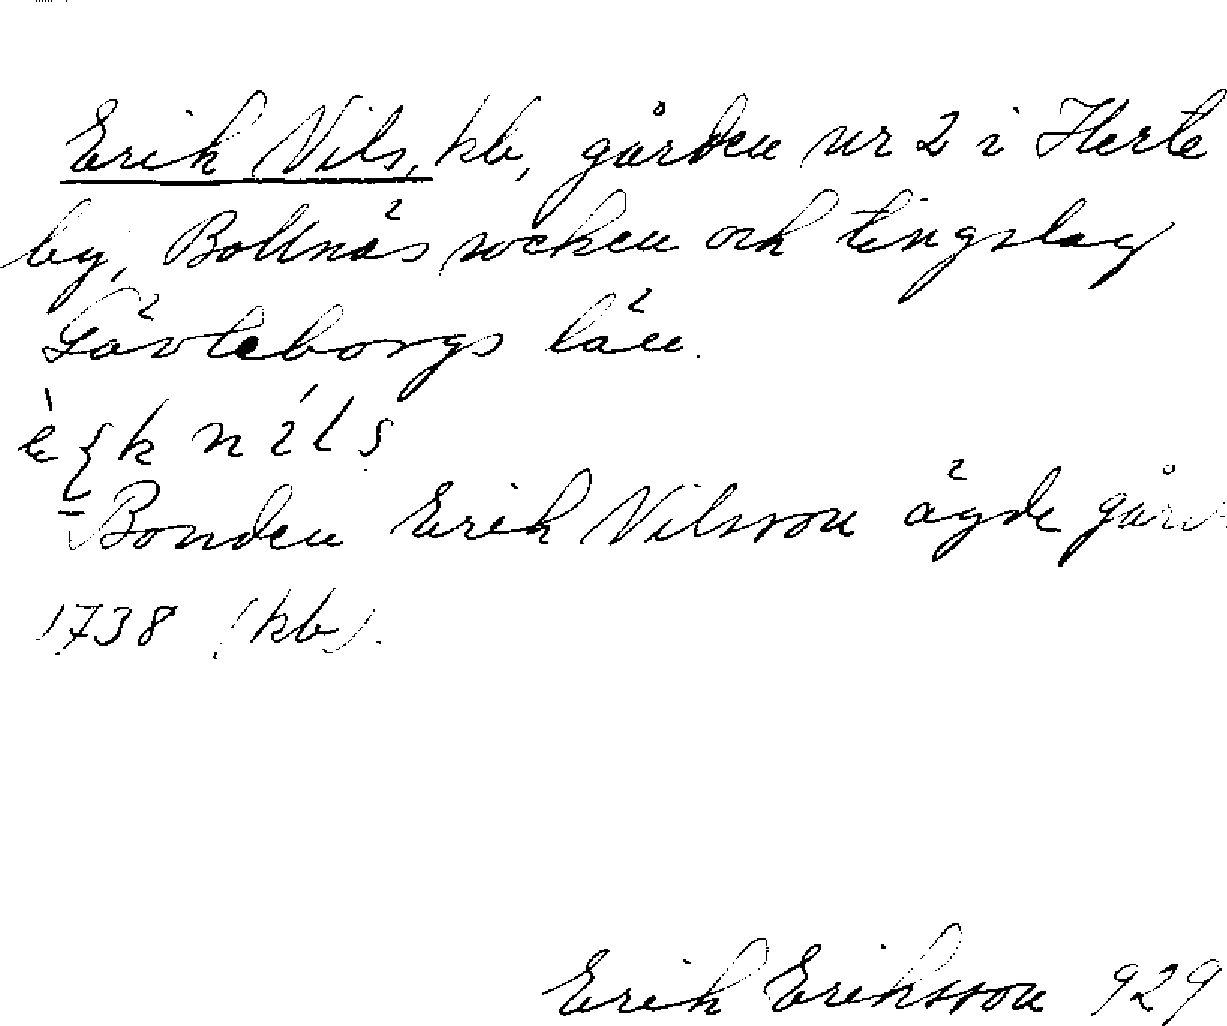 Erik Nils, kb, gården nr 2 i Herte
by, Bollnäs socken och tingslag
Gävleborgs län.
Bonden Erik Nilsson ägde går
1738 (kb).
Erik Eriksson 929